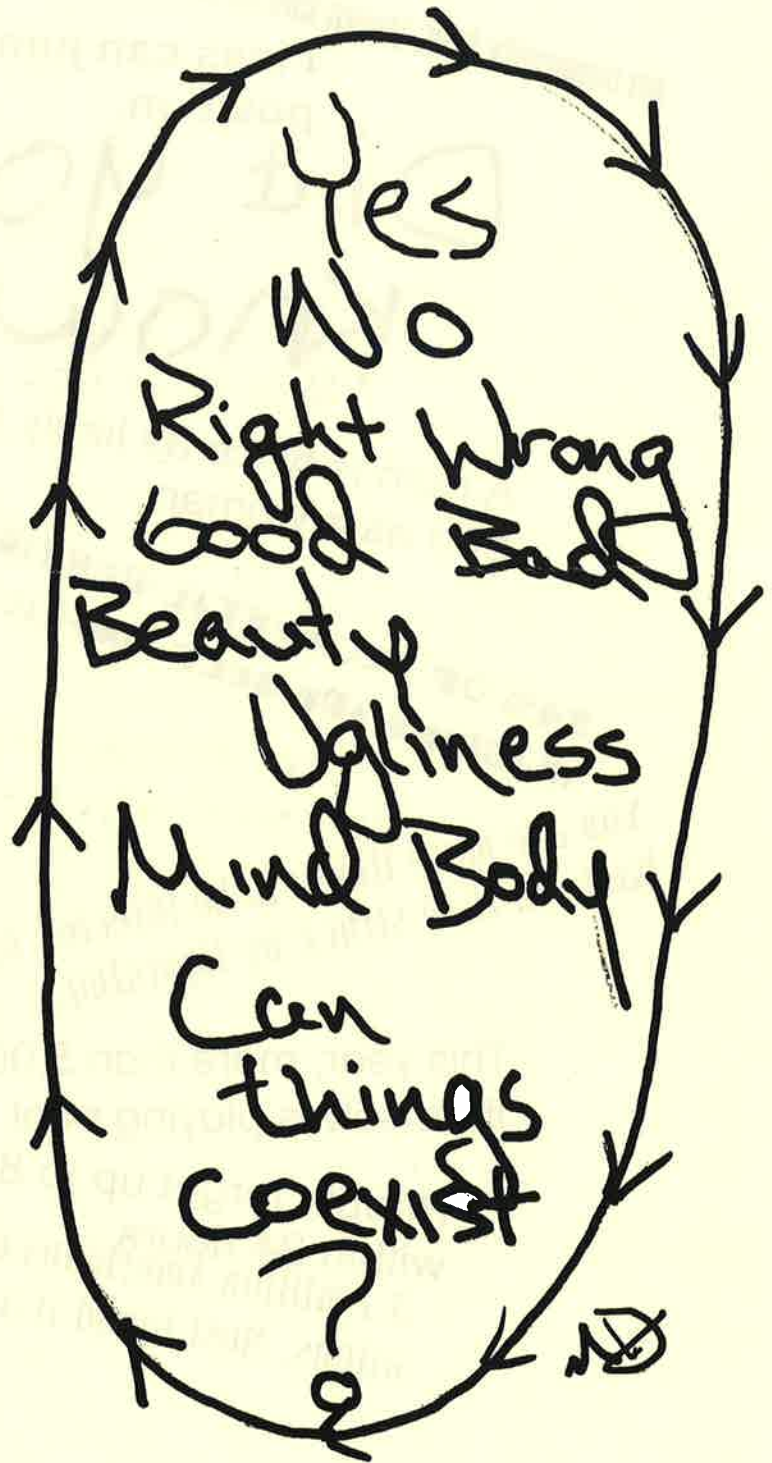 Yes
No
Right Wrong
Good Bad
Beauty
Ugliness
Mind Body
Can
things
coexist
?